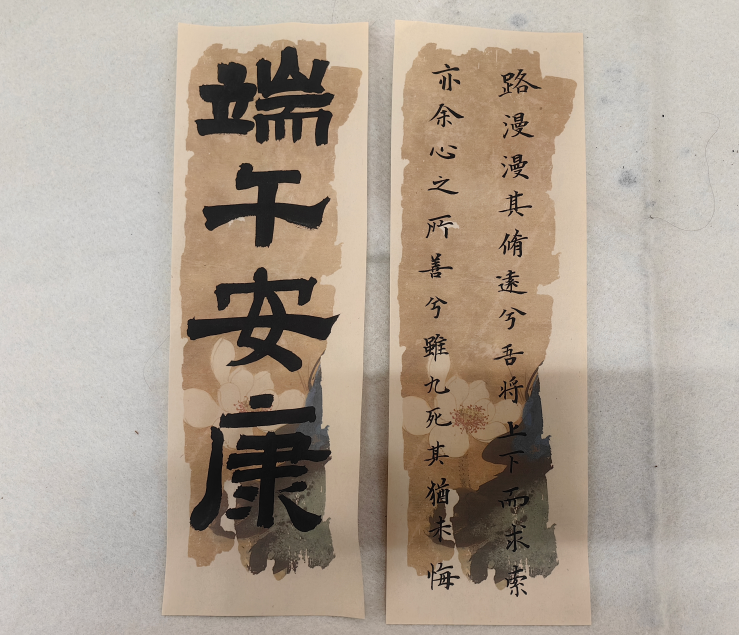 端午安康
路漫漫其脩遠兮吾将上下而求索
亦余心之所善兮雖九死其猶未悔